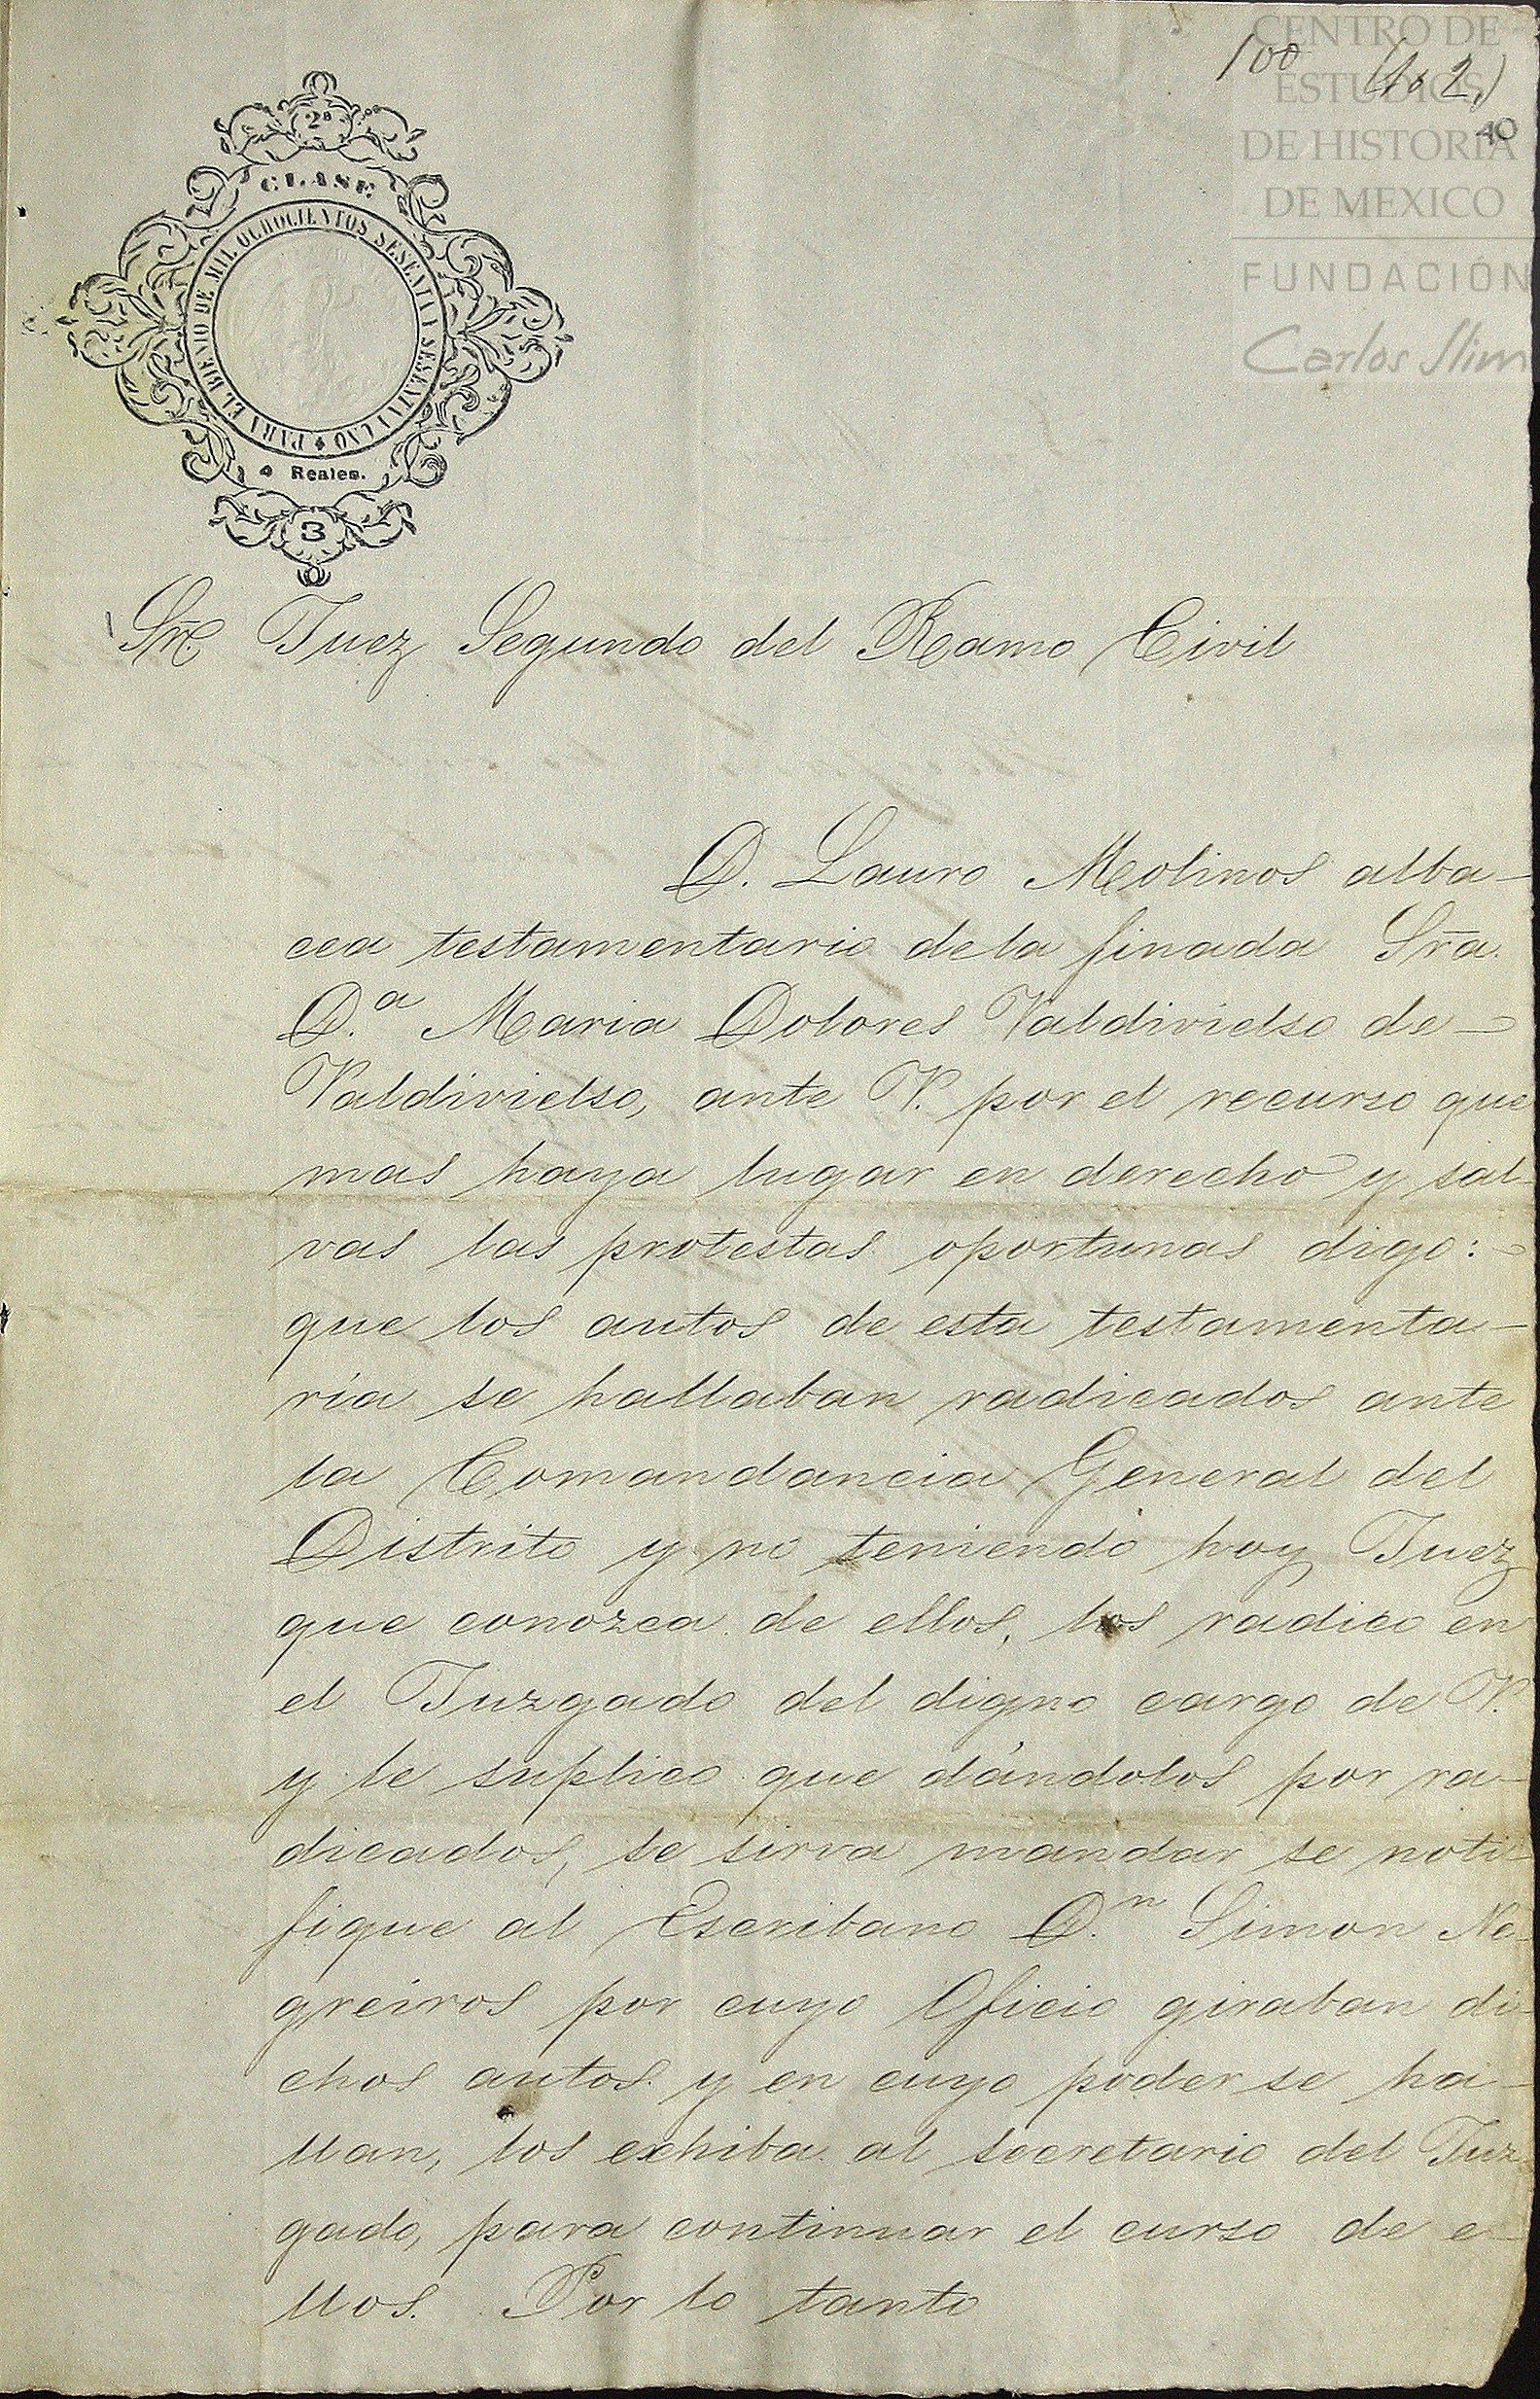 100 (1o 2.)
40
CENTRO DE
ESTUDIOS
DE HISTORIA
DE MEXICO
FUNDACIÓN
Carlos Slim
2ª
CLASE
PARA EL BIENIO DE MIL OCHOCIENTOS SESENTA Y SESENTA Y UNO
4 Reales.
3
Sñr. Juez Segundo del Ramo Civil
D. Lauro Molinos alba-
cea testamentario dela finada Sra.
D.ª Maria Dolores Valdivielso de
Valdivielso, ante V. por el recurso que
mas haya lugar en derecho y sal-
vas las protestas oportunas digo:
que los autos de esta testamenta-
ría se hallaban radicados ante
la Comandancia General del
Distrito y no teniendo hoy Juez
que conozca de ellos, los radico en
el Juzgado del digno cargo de V.
y le suplico que dándolos por ra-
dicados, se sirva mandar se noti-
fique al Escribano D.n Simon Ne-
greiros por cuyo Oficio giraban di-
chos autos y en cuyo poder se ha-
llan, los exhiba al secretario del Juz-
gado, para continuar el curso de e-
llos. Por lo tanto